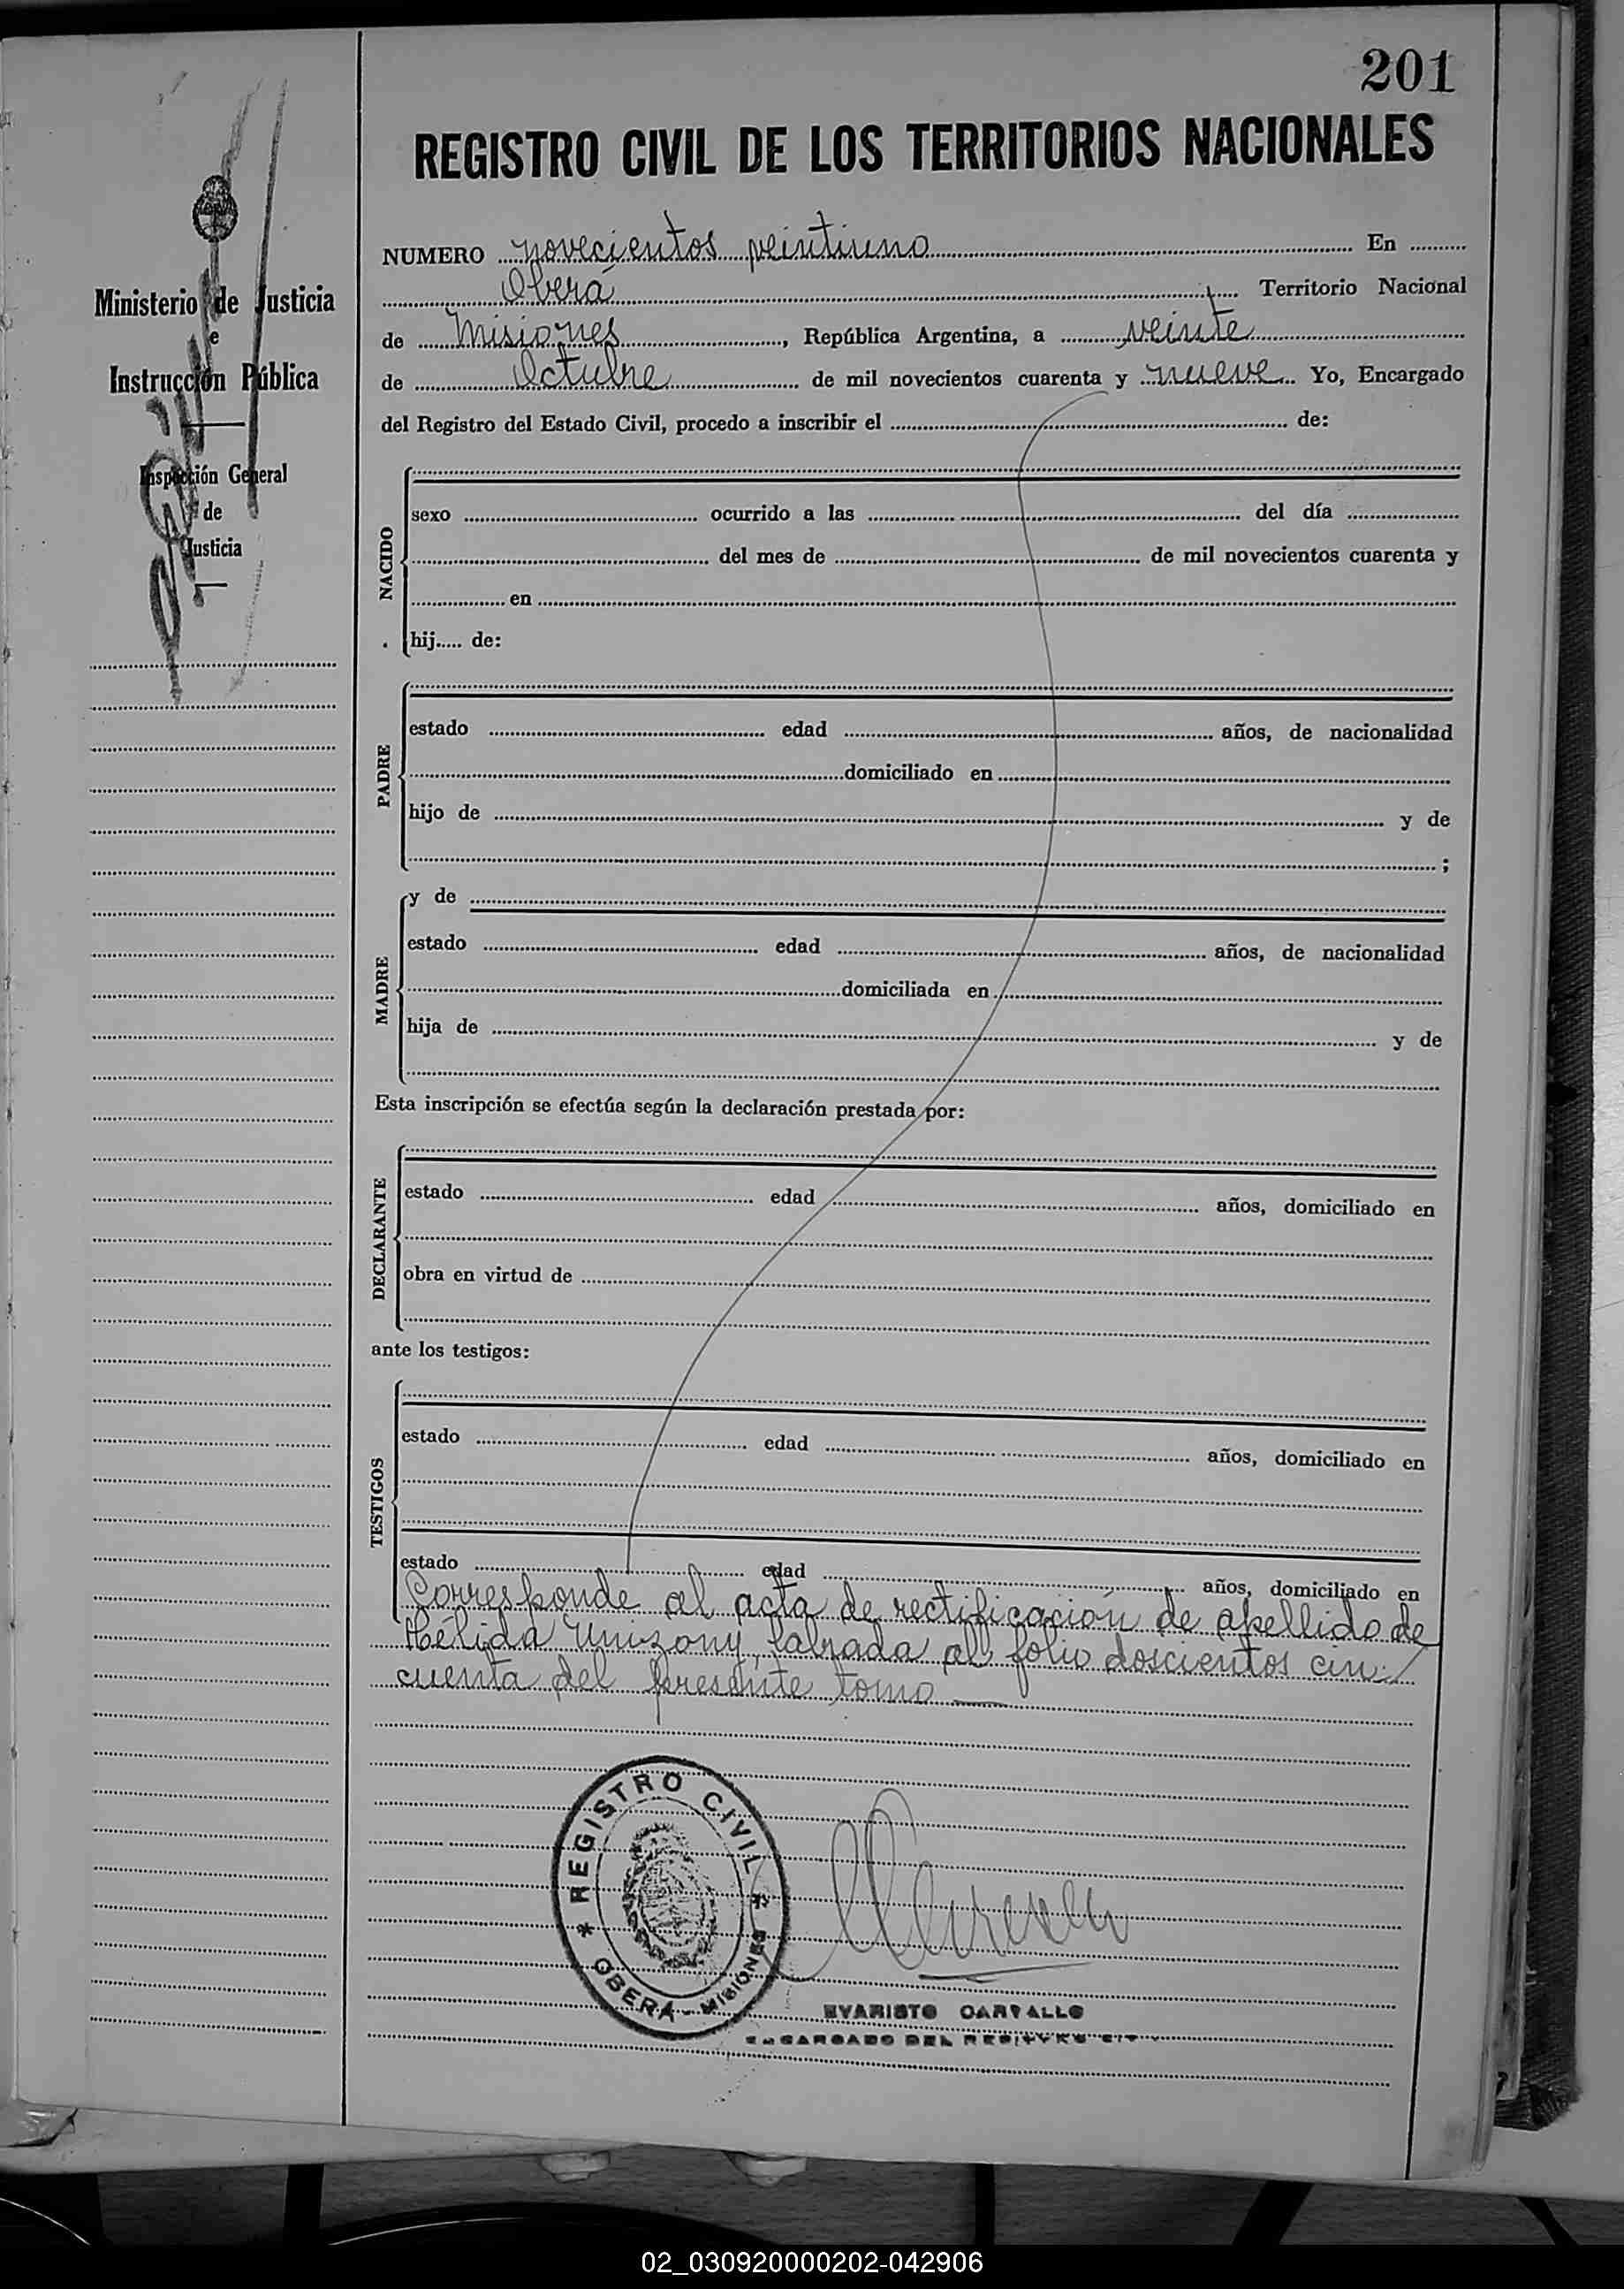 201
REGISTRO CIVIL DE LOS TERRITORIOS NACIONALES
Ministerio de Justicia
e
Instrucción Pública
Inspección General
de
Justicia
NUMERO novecientos veintiuno En
Oberá Territorio Nacional
de Misiones, República Argentina, a veinte
de Octubre de mil novecientos cuarenta y nueve Yo, Encargado
del Registro del Estado Civil, procedo a inscribir el de:
NACIDO
sexo ocurrido a las del día
del mes de de mil novecientos cuarenta y
en
hij..... de:
PADRE
estado edad años, de nacionalidad
domiciliado en
hijo de y de
;
MADRE
y de
estado edad años, de nacionalidad
domiciliada en
hija de y de
Esta inscripción se efectúa según la declaración prestada por:
DECLARANTE
estado edad años, domiciliado en
obra en virtud de
ante los testigos:
TESTIGOS
estado edad años, domiciliado en
estado edad años, domiciliado en
Corresponde al acta de rectificación de apellido de
Hélida labrada al folio doscientos cin-
cuenta del presente tomo
REGISTRO CIVIL
OBERÁ - MISIONES
EVARISTO CARVALLO
ENCARGADO DEL REGISTRO
02_030920000202-042906